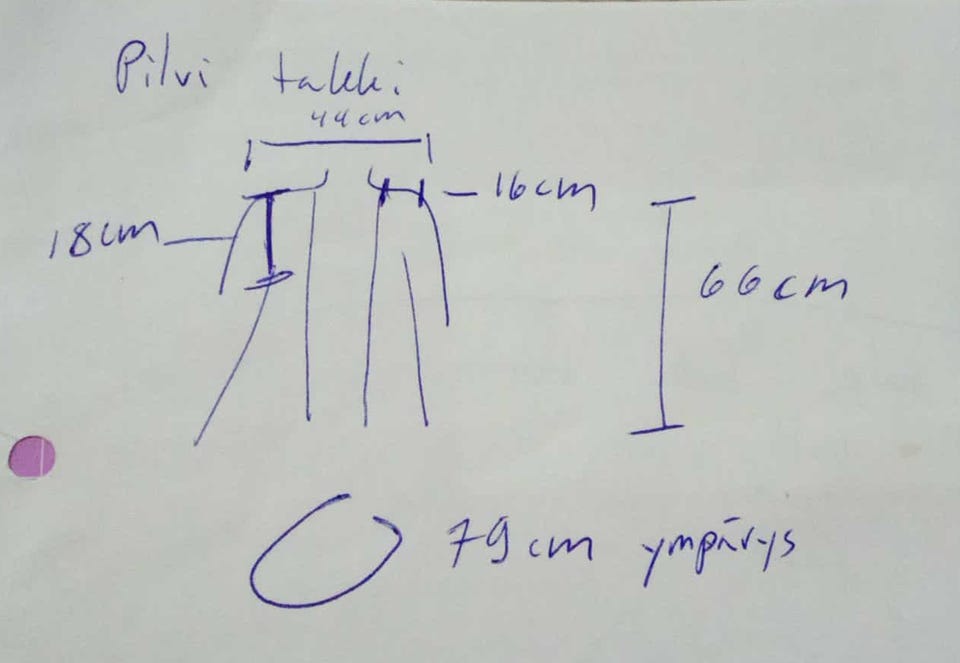 Pilvi takki
44cm
16cm
18cm
66cm
79cm ympärys